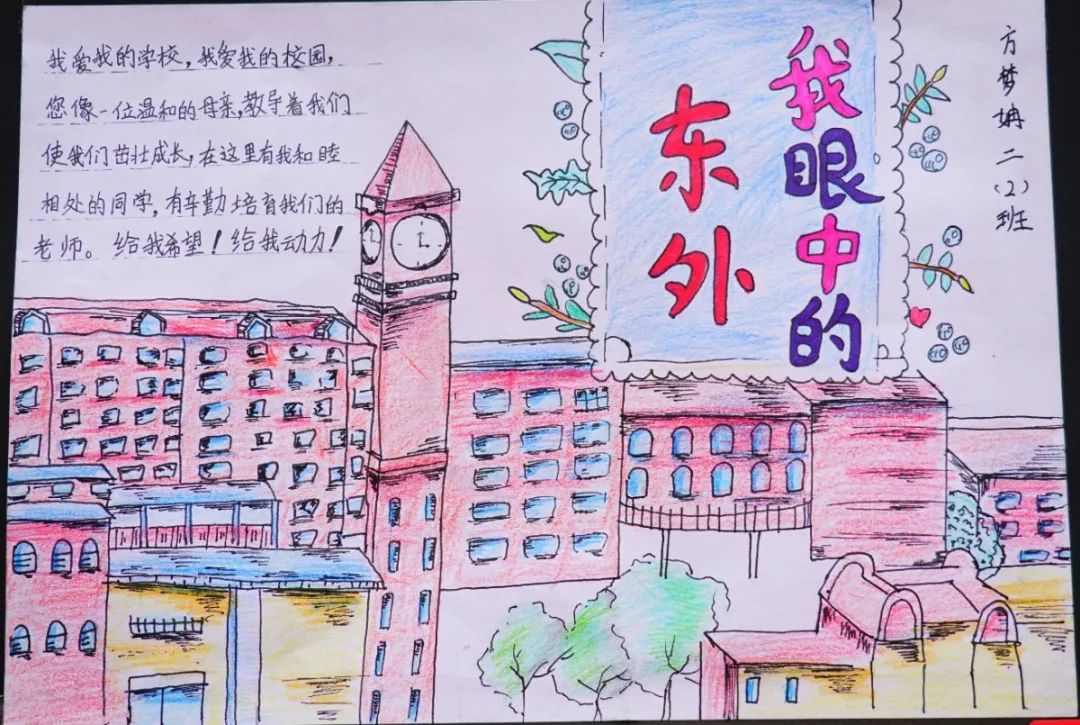 我爱我的学校，我爱我的校园，
您像一位温和的母亲，教导着我们
使我们茁壮成长，在这里有我和睦
相处的同学，有辛勤培育我们的
老师。给我希望！给我动力！
我眼中的
东外
方梦姌 二（2）班